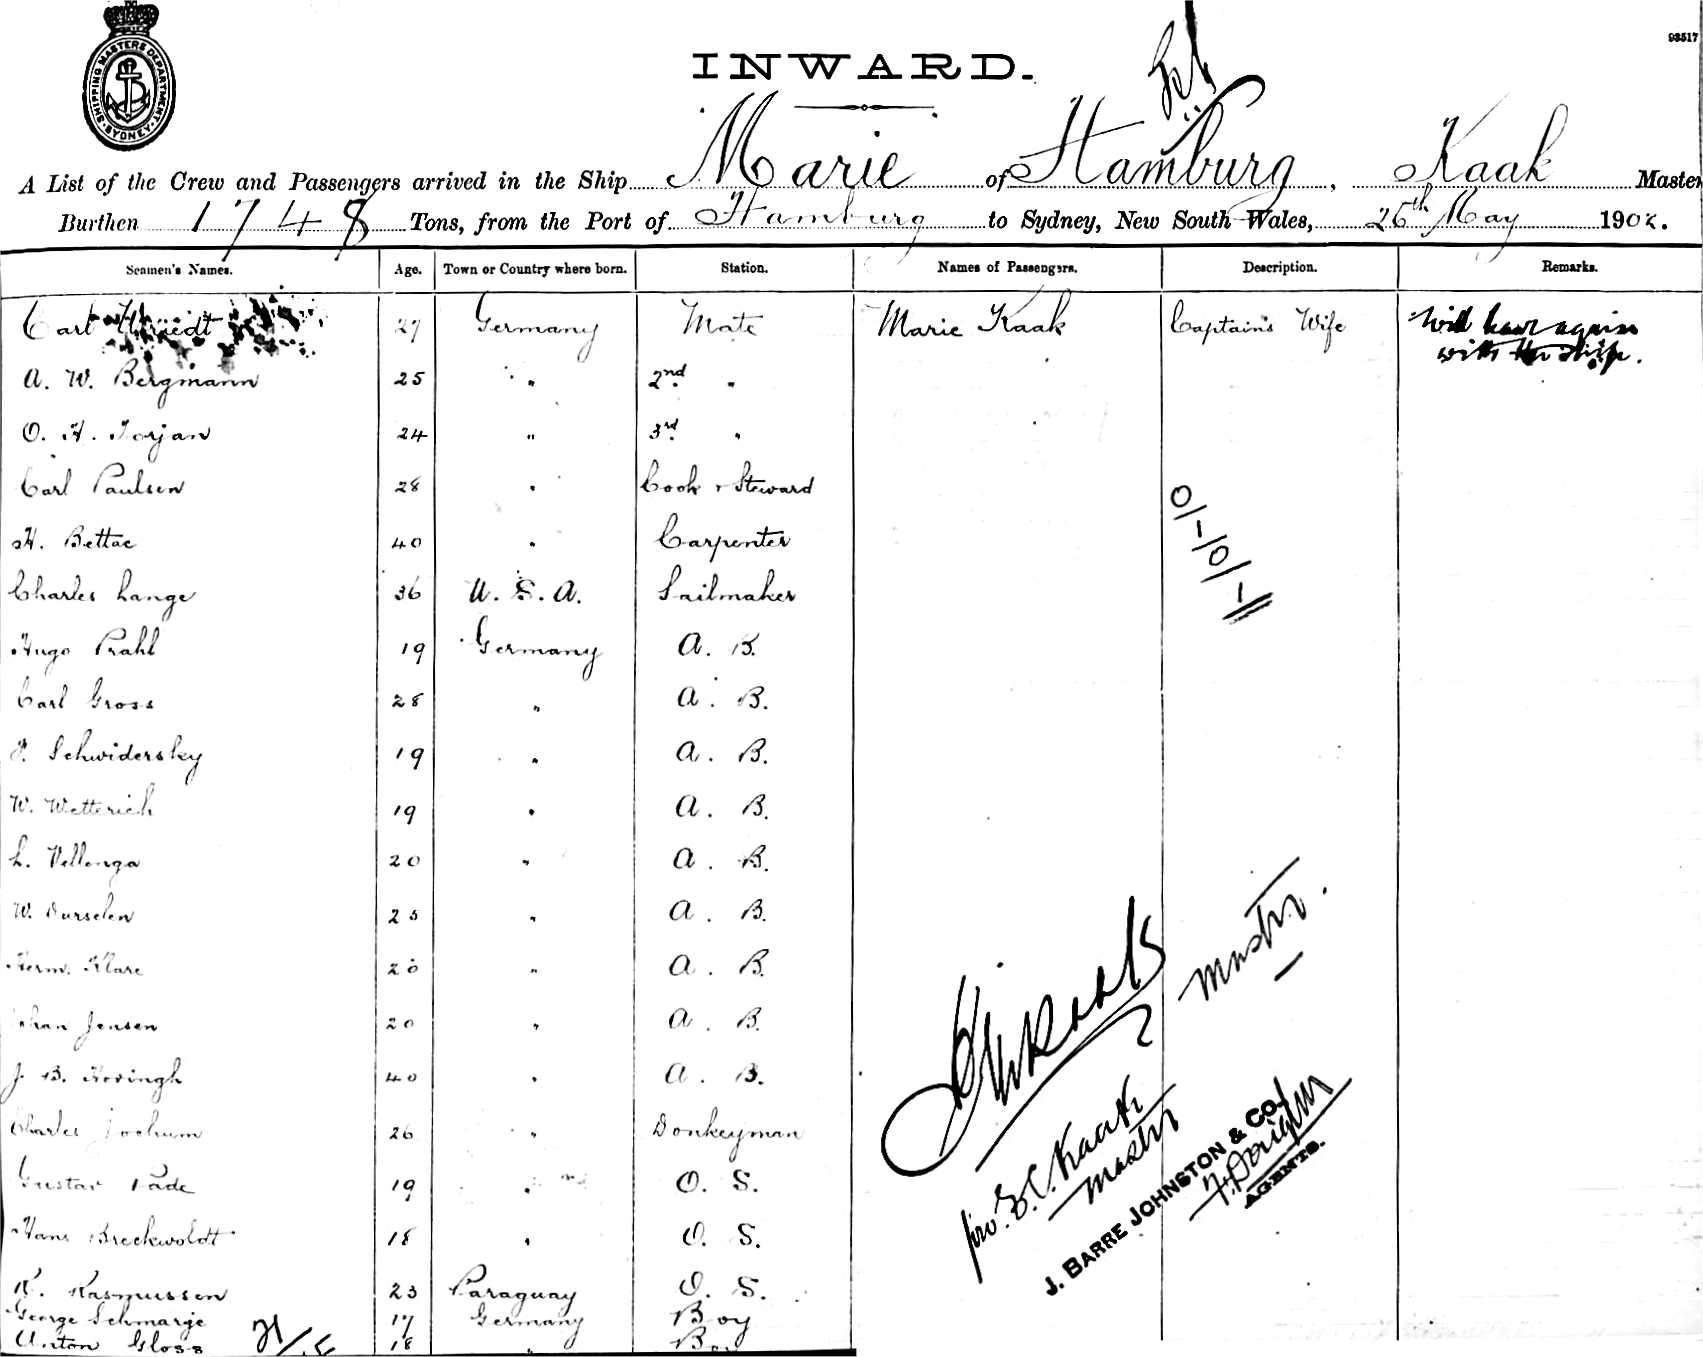 93517
SHIPPING MASTERS DEPARTMENT
SYDNEY
INWARD.
A List of the Crew and Passengers arrived in the Ship Marie of Hamburg, Kaak Master
Burthen 1748 Tons, from the Port of Hamburg to Sydney, New South Wales, 26th May 1902.
Seamen's Names. Age. Town or Country where born. Station. Names of Passengers. Description. Remarks.
Carl 27 Germany Mate Marie Kaak Captain's Wife Will leave again
with the ship.
A. W. Bergmann 25 " 2nd "
O. H. Torjan 24 " 3rd "
Carl Paulsen 28 " Cook & Steward
H. Bettac 40 " Carpenter
Charles Lange 36 U. S. A. Sailmaker
Hugo Prahl 19 Germany A. B.
Carl Gross 28 " A. B.
Schwidersky 19 " A. B.
W. Wetterich 19 " A. B.
L. Vellenga 20 " A. B.
W. Durselen 25 " A. B.
Herm. Klare 20 " A. B.
Johan Jensen 20 " A. B.
J. B. Hovingh 40 " A. B.
Charles Jochum 26 " Donkeyman
Gustav Pade 19 " O. S.
Hans Breckwoldt 18 " O. S.
K. Rasmussen 23 Paraguay O. S.
George Schmarje 17 Germany Boy
Anton Gloss 18 " Boy
0/-10/-11
Master.
pro. Kaak
Master
J. BARRE JOHNSTON & CO.
AGENTS.